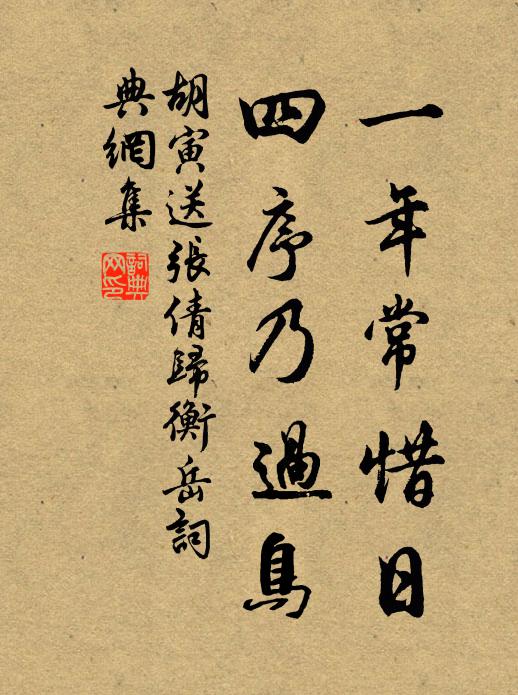 一年常惜日
四序乃過鳥
胡寅送張倩歸衡岳詞
典網集
詞典
网印